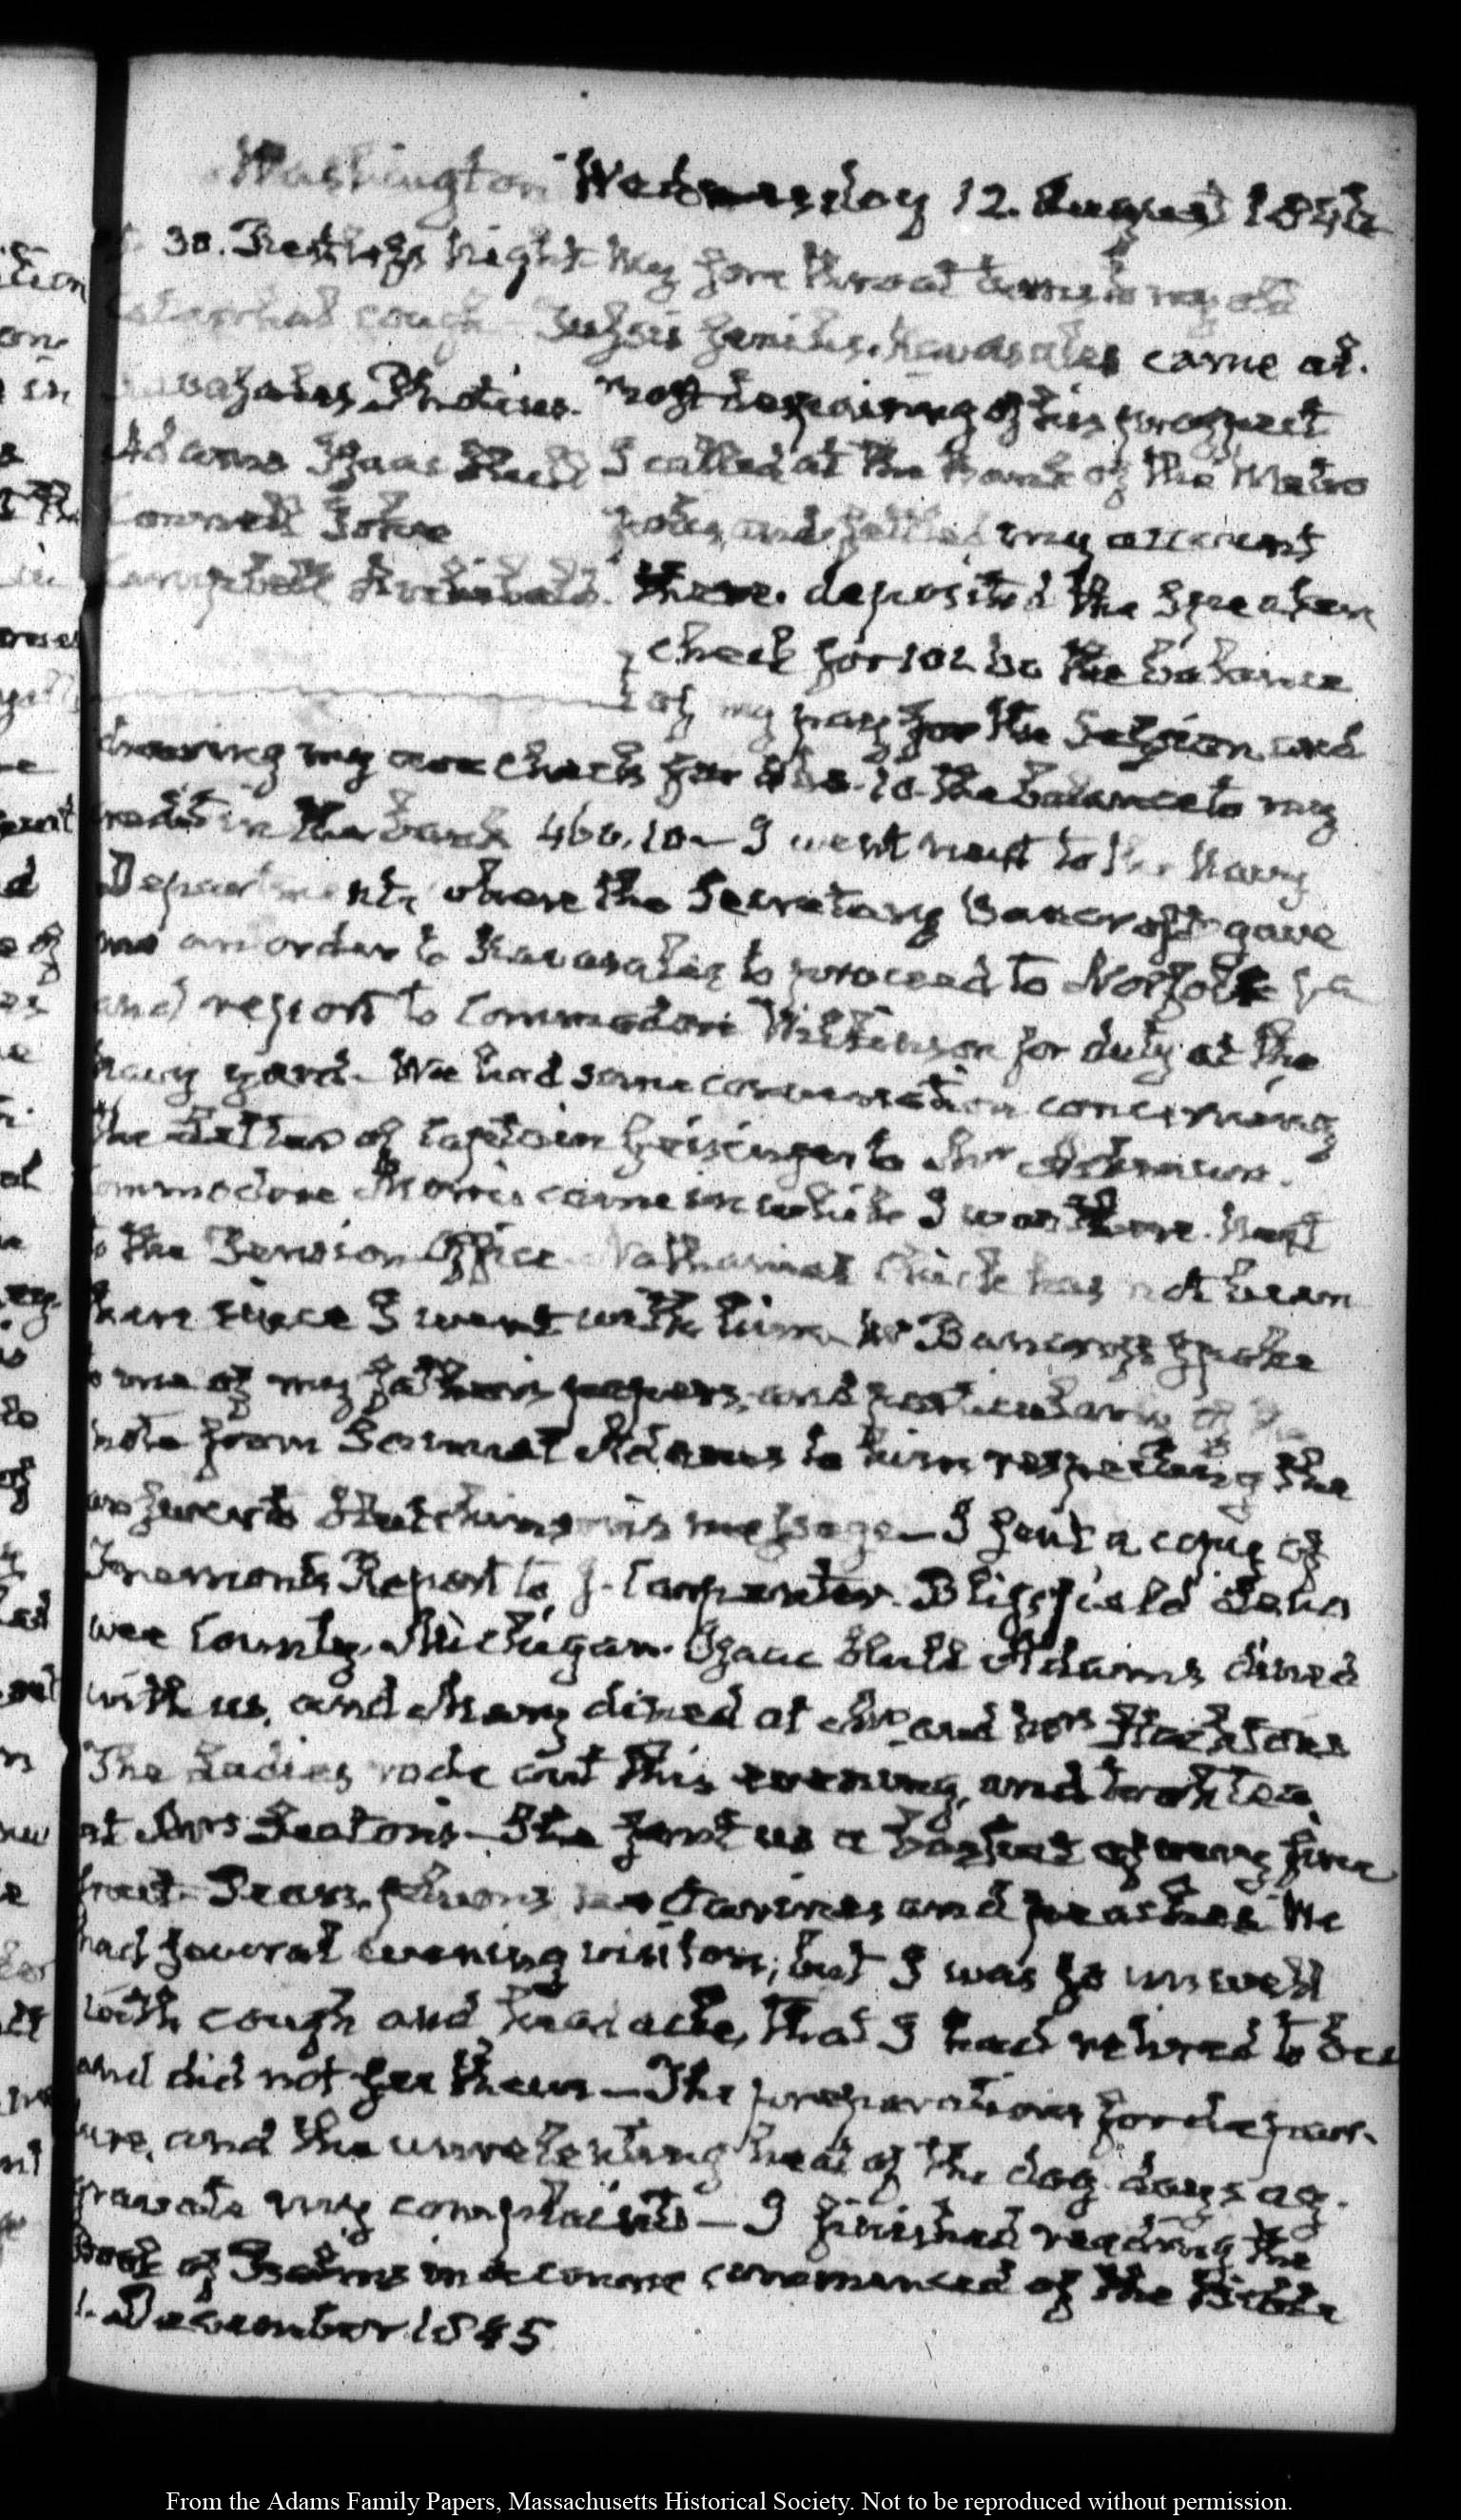 Washington Wednesday 12. August 1846
30. Restless night. My sore throat turns to my old
catarrhal cough Tussis senilis. came at.
Photius. most despairing of his prospect
Adams Isaac Hull I called at the Bank of the Metro
Connell John polis, and settled my account
Campbell Archibald. there. deposited the Speaker's
check for 102 the balance
of my pay for the Session, and
drawing my own check for the balance to my
credit in the bank 460.10 — I went next to the Navy
Department, where the Secretary Bancroft gave
me an order to to proceed to Norfolk Va
and report to Commodore Wilkinson for duty at the
navy yard. We had some conversation concerning
the Letter of Captain Geisinger to Mr
Commodore Morris came in while I was there. Next
to the Pension Office. Nathaniel has not been
there since I went with him. Mr Bancroft spoke
to me of my father's papers, and particularly of the
note from Samuel Adams to him respecting the
answer to Hutchinson's message — I sent a copy of
Fremont's Report to J. Carpenter. Blissfield Lena
wee County, Michigan. Isaac Hull Adams dined
with us, and Mary dined at Mr and Mrs
The Ladies rode out this evening, and took tea
at Mrs Seaton's — She sent us a basket of very fine
fruit. Pears, plums nectarines and peaches. We
had several evening visitors, but I was so unwell
with cough and headache, that I had retired to bed
and did not see them — The preparations for depart-
ure, and the unrelenting heat of the dog days ag-
gravate my complaints — I finished reading the
Book of Psalms in a course commenced of the Bible
1. December 1845
From the Adams Family Papers, Massachusetts Historical Society. Not to be reproduced without permission.